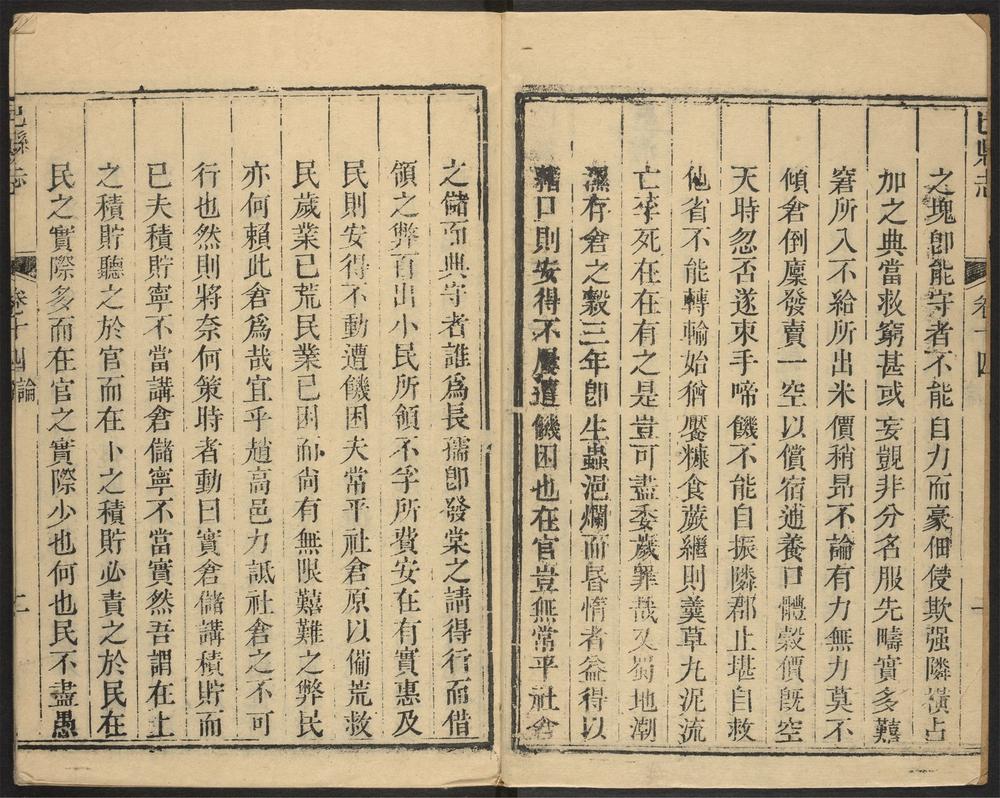 巴縣志
卷十四
一
之塊卽能守者不能自力而豪佃侵欺强隣橫占
加之典當救窮甚或妄覬非分名服先疇實多囏
窘所入不給所出米價稍昂不論有力無力莫不
傾倉倒廩發賣一空以償宿逋養口體穀價旣空
天時忽否遂束手啼饑不能自振隣郡止堪自救
他省不能轉輸始猶饜糠食蕨繼則羹草丸泥流
亡莩死在在有之是豈可盡委歲罪哉又蜀地潮
濕存倉之穀三年卽生蟲浥爛而昏惰者益得以
藉口則安得不屢遭饑困也在官豈無常平社倉
之儲而典守者誰爲長孺卽發棠之請得行而借
領之弊百出小民所領不孚所費安在有實惠及
民則安得不動遭饑困夫常平社倉原以備荒救
民歲業已荒民業已困而尚有無限囏難之弊民
亦何賴此倉爲哉宜乎趙高邑力詆社倉之不可
行也然則將奈何策時者動曰實倉儲講積貯而
已夫積貯寧不當講倉儲寧不當實然吾謂在上
之積貯聽之於官而在下之積貯必責之於民在
民之實際多而在官之實際少也何也民不盡愚
巴縣志
卷十四
論
二